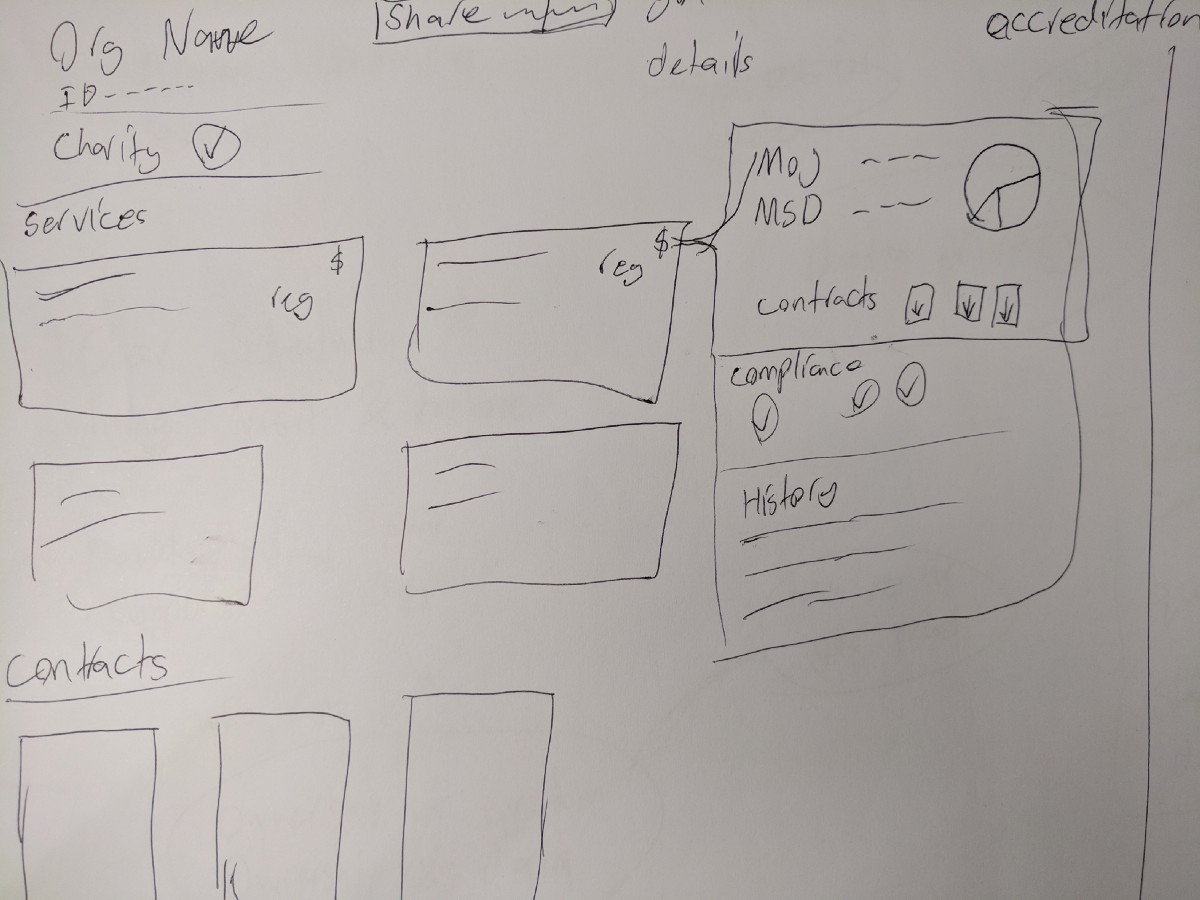 Org Name
ID
Charity
Share
details
accreditation
Services
$
reg
$
reg
MoJ
MSD
contracts
compliance
History
contacts